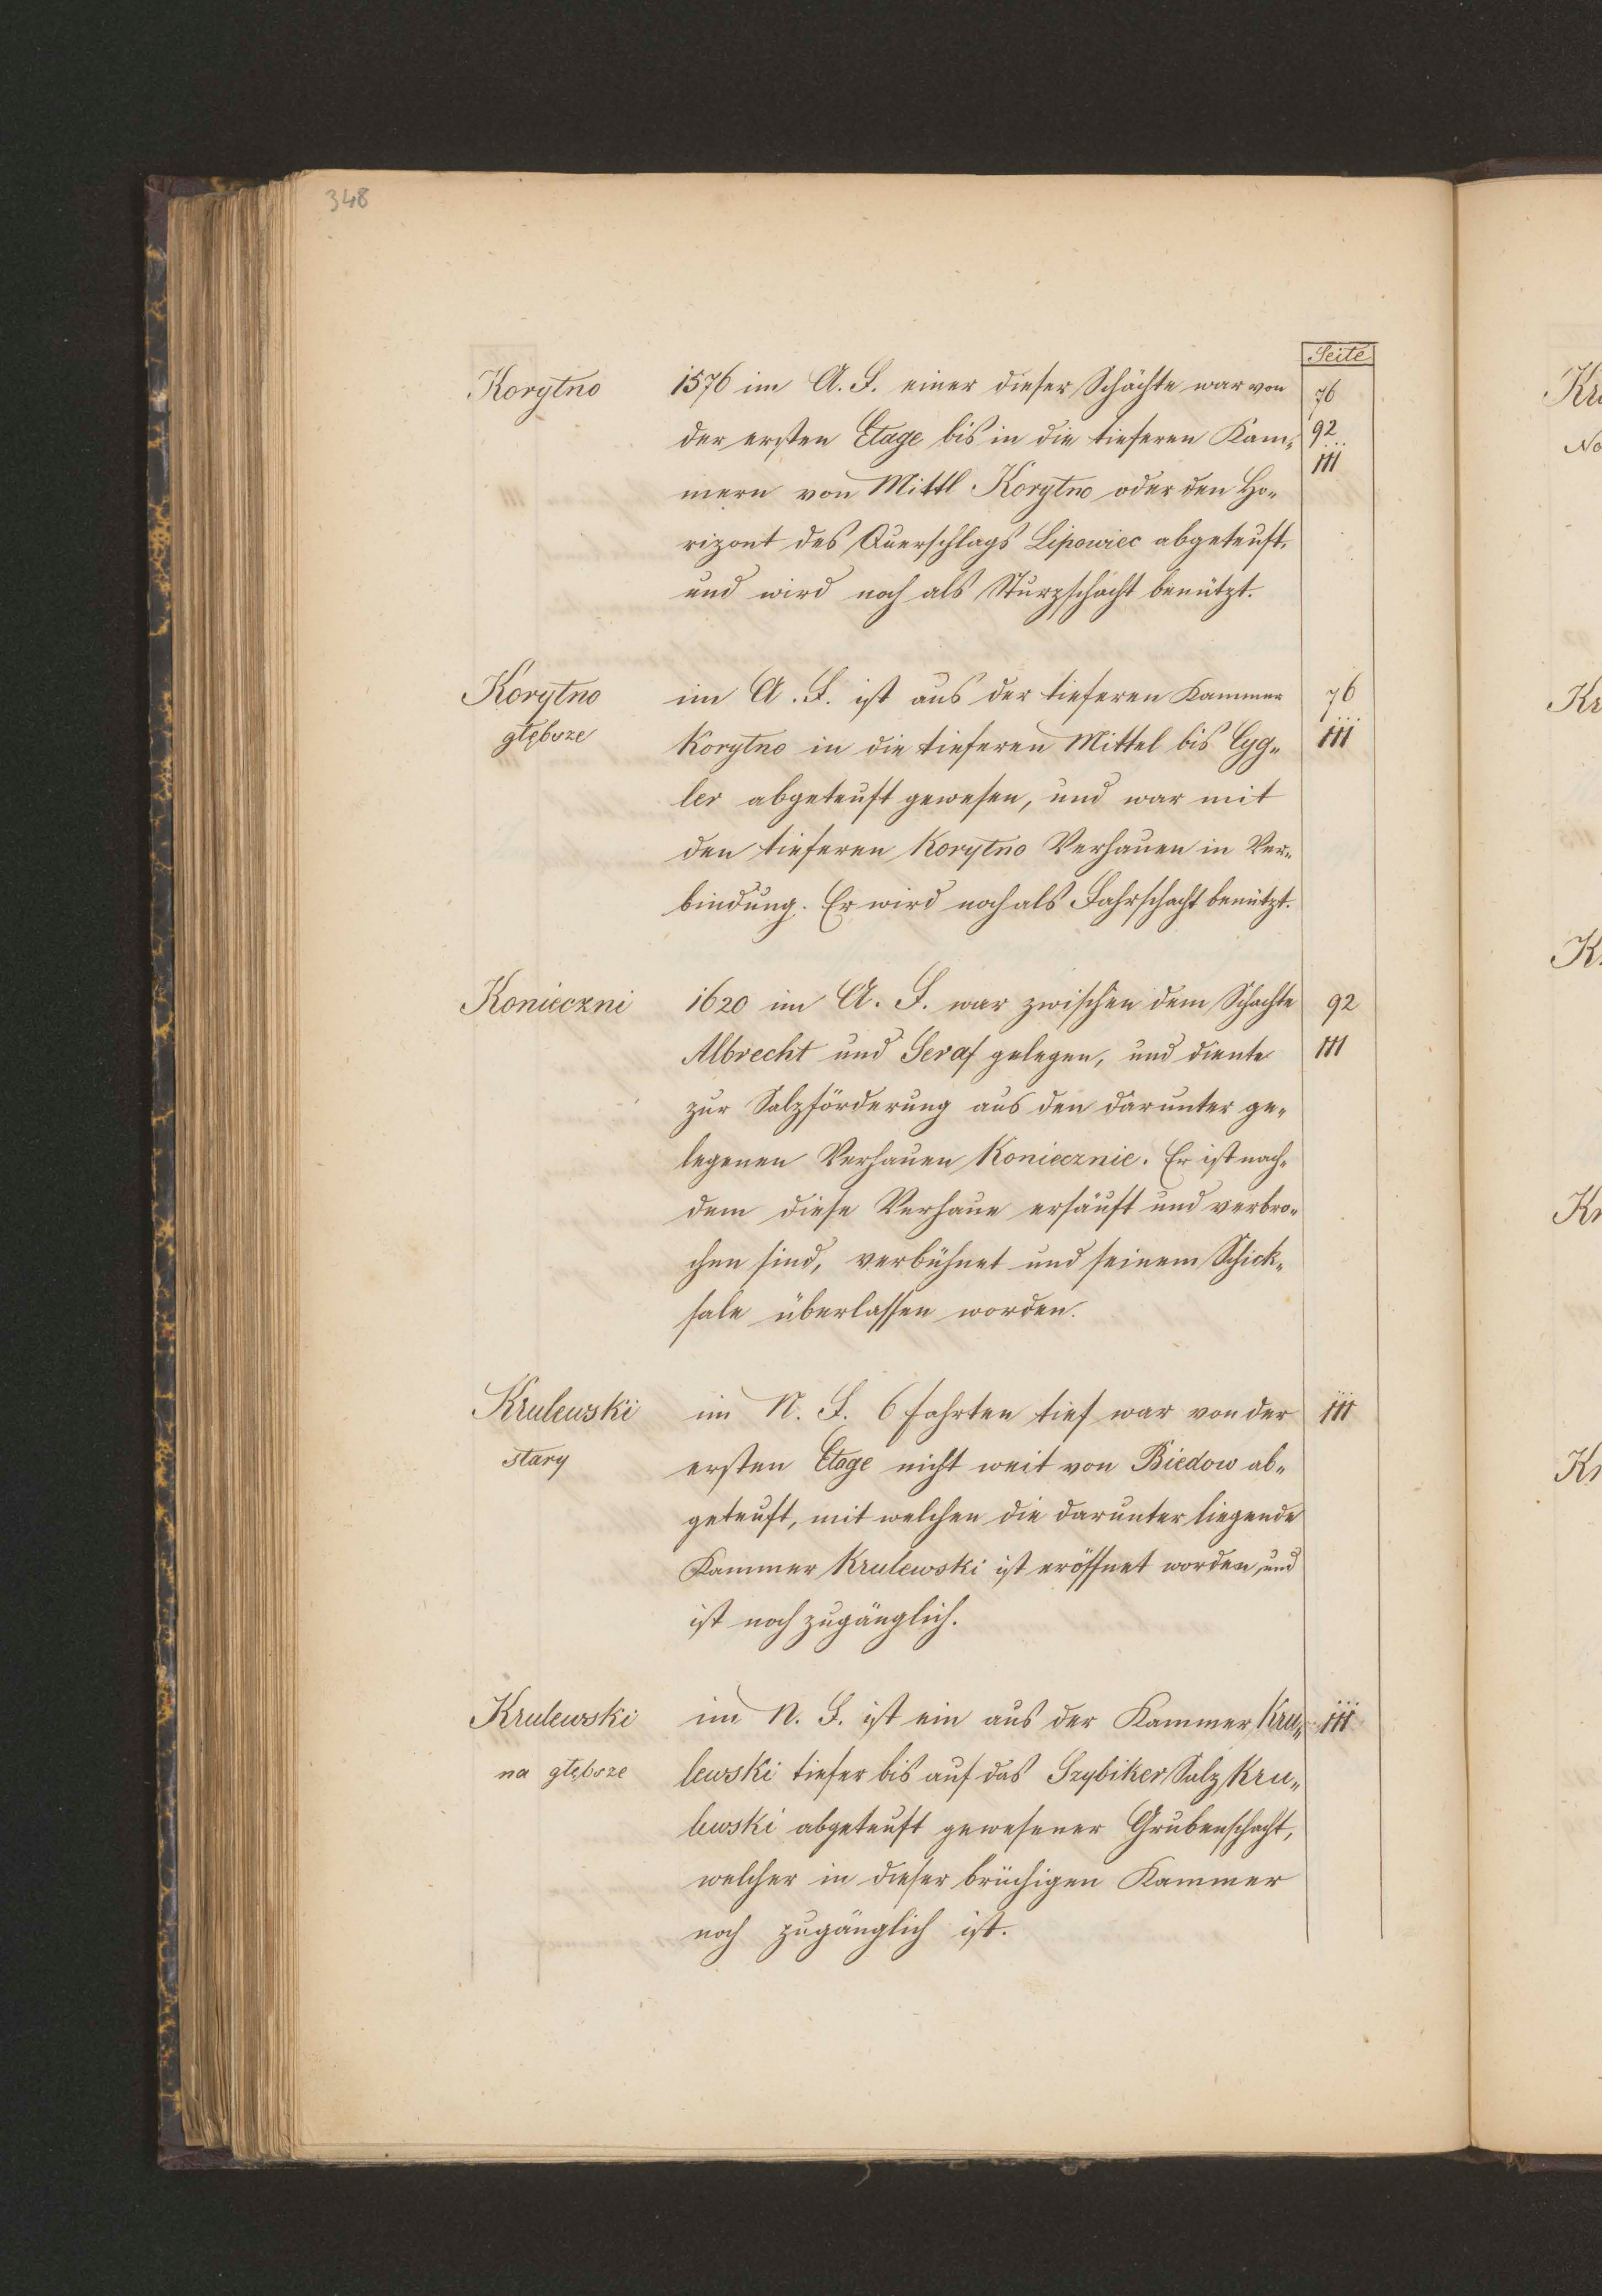 348
Seite
Korytno 1576 im A. F. einer dieser Schächte war von 76
der ersten Etage bis in die tieferen Kam- 92
mern von Mittl Korytno oder den Ho- 111
rizont des Querschlags Lipowiec abgeteuft,
und wird noch als Sturzschacht benützt.
Korytno im A. F. ist aus der tieferen Kammer 76
głębsze Korytno in die tieferen Mittel bis Cyg- 111
ler abgeteuft gewesen, und war mit
den tieferen Korytno Verhauen in Ver-
bindung. Er wird noch als Fahrschacht benützt.
Konieczni 1620 im A. F. war zwischen dem Schachte 92
Albrecht und Seraf gelegen, und diente 111
zur Salzförderung aus den darunter ge-
legenen Verhauen Koniecznie. Er ist nach-
dem diese Verhaue ersäuft und verbro-
chen sind, verbühnet und seinem Schick-
sale überlassen worden.
Krulewski im N. F. 6 Fahrten tief war von der 111
stary ersten Etage nicht weit von Biedow ab-
geteuft, mit welchen die darunter liegende
Kammer Krulewski ist eröffnet worden, und
ist noch zugänglich.
Krulewski im N. F. ist ein aus der Kammer Kru- 111
na głębsze lewski tiefer bis auf das Szybiker Salz Kru-
lewski abgeteuft gewesener Grubenschacht,
welcher in dieser brüchigen Kammer
noch zugänglich ist.
Kr
No
Kr
K
Kr
Kr